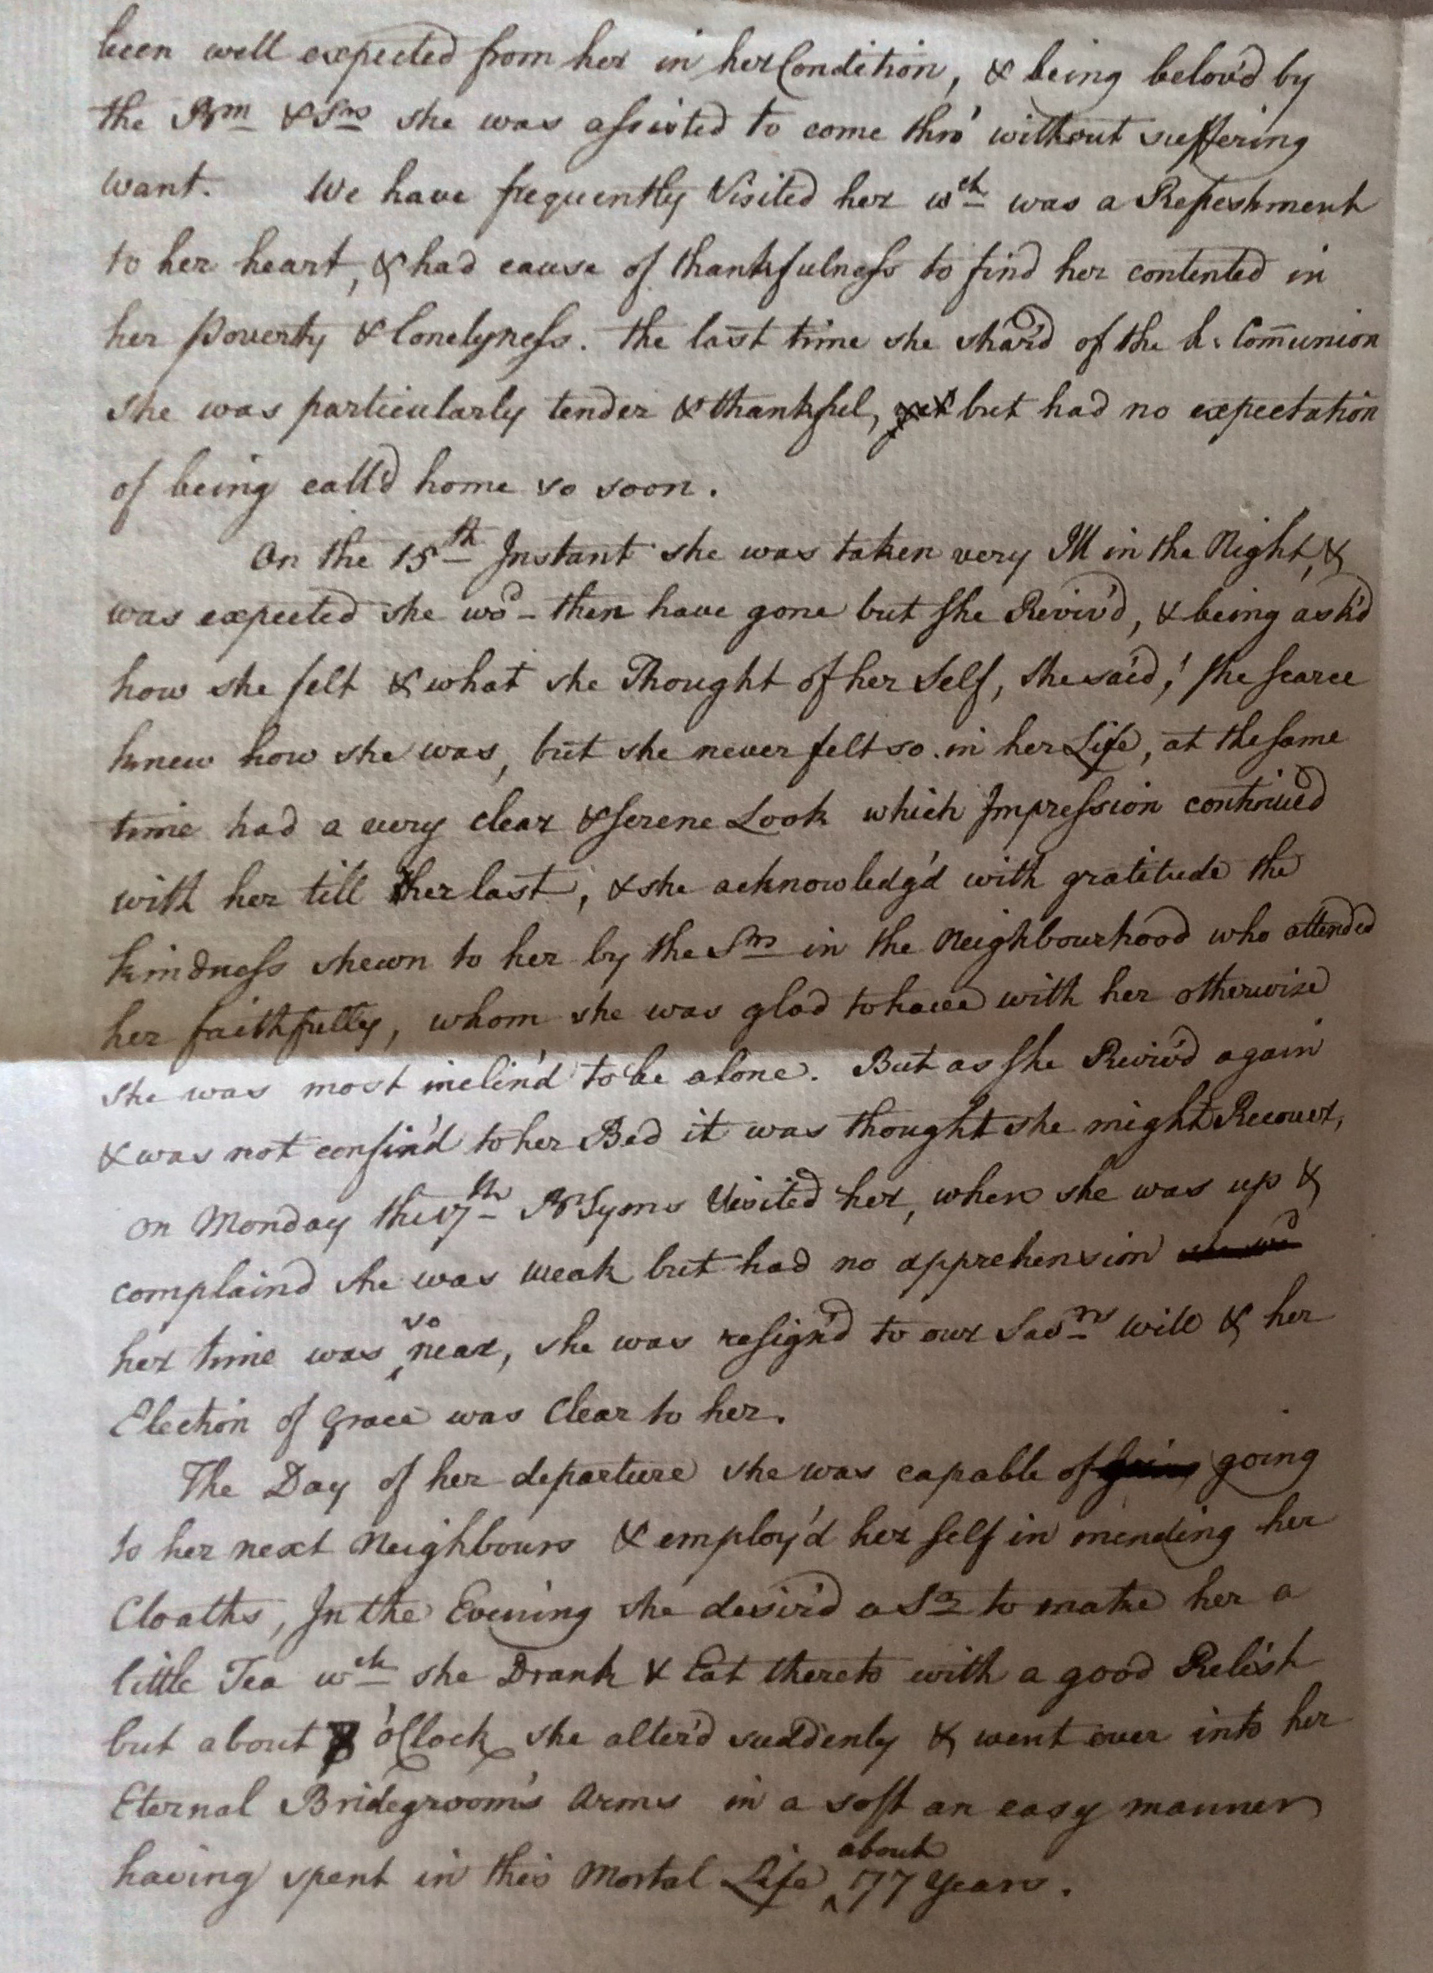 been well expected from her in her Condition, & being belov'd by
the Brn & Srs she was assisted to come thro' without suffering
want. We have frequently Visited her wch was a Refreshment
to her heart, & had cause of thankfulness to find her contented in
her poverty & lonelyness. the last time she shar'd of the h: Communion
she was particularly tender & thankful, but had no expectation
of being call'd home so soon.
On the 15th Instant she was taken very Ill in the Night, &
was expected she wod then have gone but she Reviv'd, & being ask'd
how she felt & what she Thought of her Self, she said, she scarce
knew how she was, but she never felt so in her Life, at the same
time had a very clear & serene Look which Impression continued
with her till her last, & she acknowledg'd with gratitude the
kindness shewn to her by the Srs in the Neighbourhood who attended
her faithfully, whom she was glad to have with her otherwise
she was most inclin'd to be alone. But as she Reviv'd again
& was not confin'd to her Bed it was thought she might Recover,
on Monday the 17th Br Syms Visited her, when she was up &
complaind she was weak but had no apprehension
her time was so near, she was resign'd to our Savrs will & her
Election of grace was Clear to her.
The Day of her departure she was capable of going
to her next Neighbours & employ'd her self in mending her
Cloaths, In the Evening she desir'd a Sr to make her a
little Tea wch she Drank & Eat thereto with a good Relish
but about o'Clock she alter'd suddenly & went over into her
Eternal Bridegroom's Arms in a soft an easy manner
having spent in this Mortal Life about 77 Years.